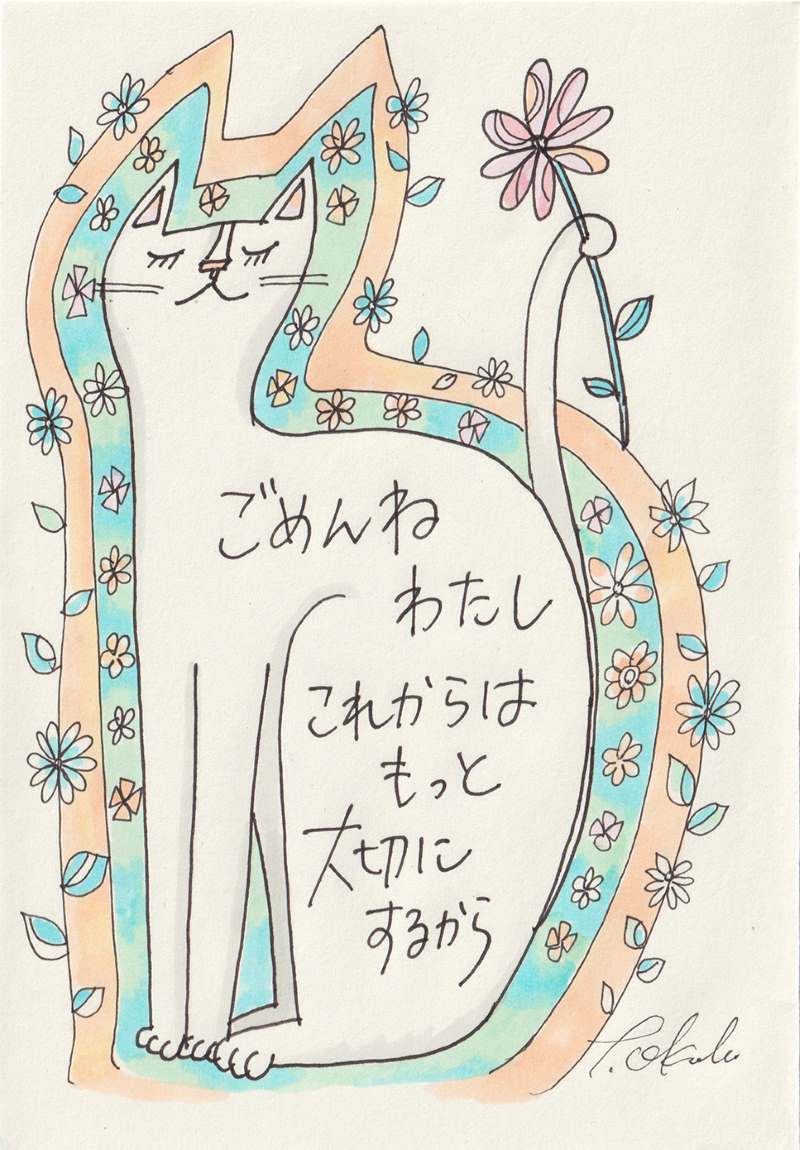 ごめんね
わたし
これからは
もっと
大切に
するから